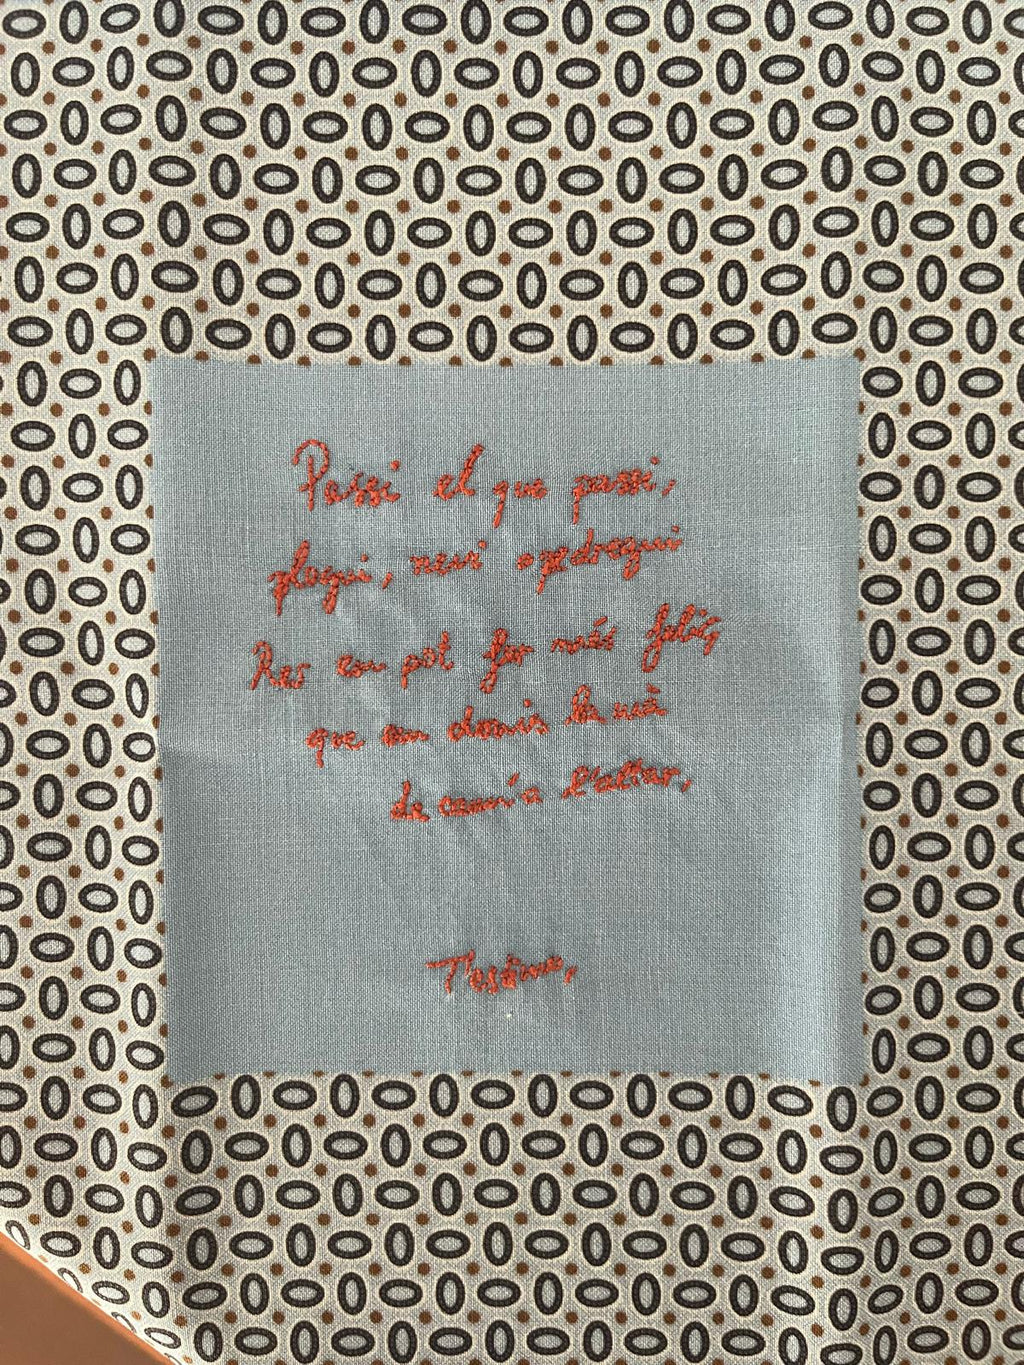 Passi el que passi,
plogui, nevi o pedregui
Res em pot fer més feliç
que em donis la mà
de camí a l'altar,
T'estimo,